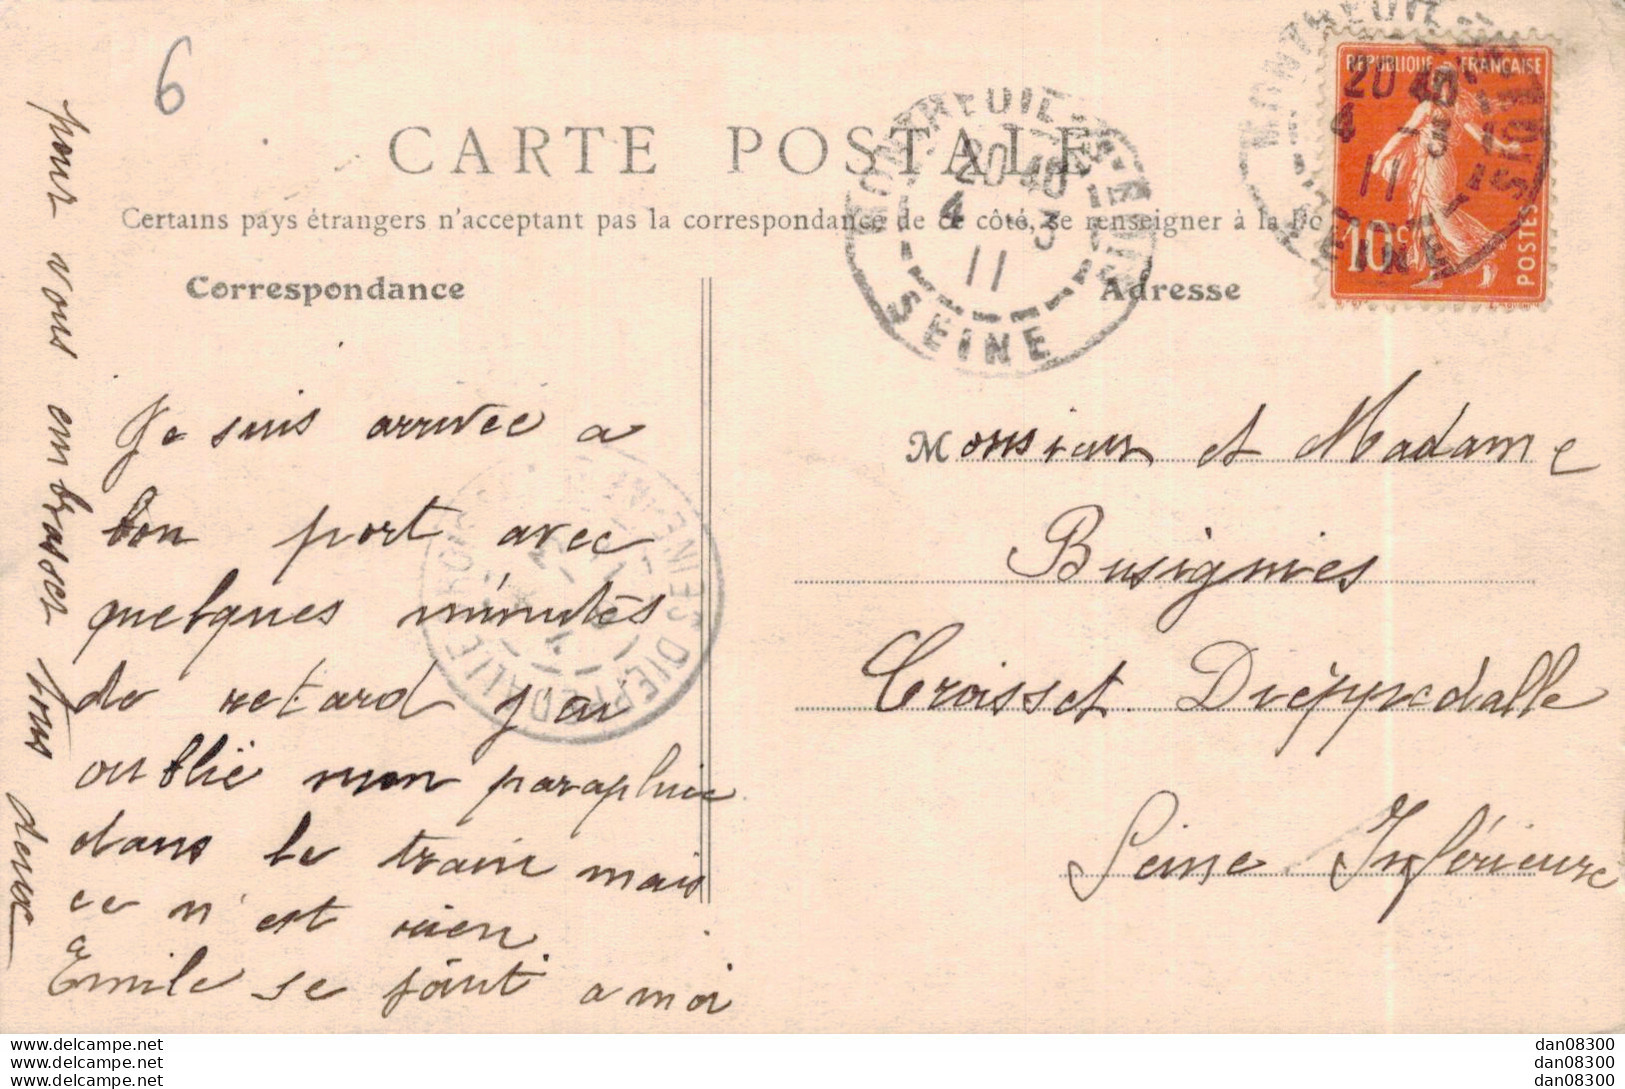 6
CARTE POSTALE
Certains pays étrangers n'acceptant pas la correspondance de ce côté, se renseigner à la
Correspondance
Adresse
REPUBLIQUE FRANÇAISE
10c
POSTES
MONTREUIL
20 40
4 3
11
SEINE
MONTREUIL
20 40
4 3
11
SEINE
DIEPPEDALLE
Je suis arrivée a
bon port avec
quelques minutes
de retard j'ai
oublié mon parapluie
dans le train mais
ce n'est rien
Emile se joint a moi
pour vous embrasser tous
deux
Monsieur et Madame
Busignies
Croisset Dièppedalle
Seine Inférieure
www.delcampe.net
www.delcampe.net
www.delcampe.net
dan08300
dan08300
dan08300